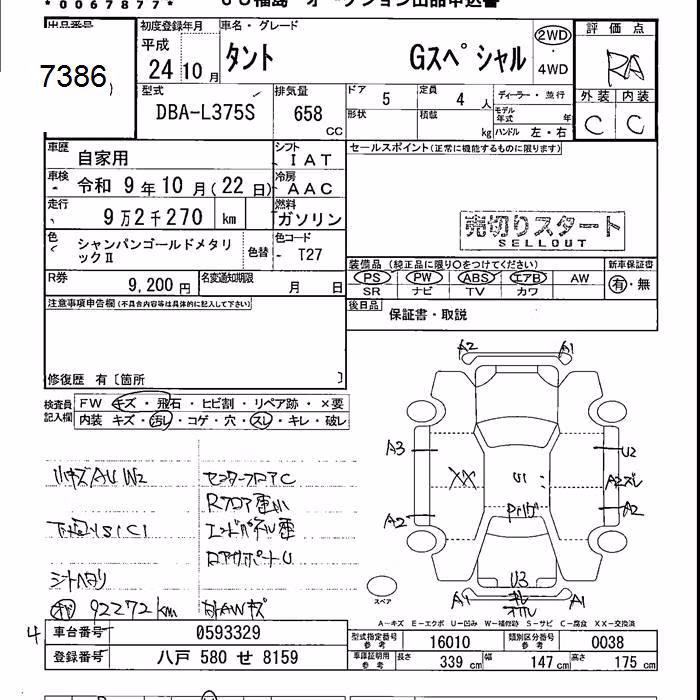 *0067877*
7386
初度登録年月 車名・グレード 評価点
平成 24 10月 タント Gスペシャル 2WD・4WD RA
型式 DBA-L375S 排気量 658 CC
ドア 5 定員 4 人 ディーラー・並行 外装 内装
形状 積載 kg モデル年式 年 ハンドル 左・右 C C
車歴 自家用 シフト IAT
セールスポイント(正常に機能するものに限ります)
車検 令和 9年10月(22日) 冷房 AAC
走行 9万2千270 km 燃料 ガソリン
売切りスタート
SELLOUT
色 シャンパンゴールドメタリックⅡ 色替 色コード T27
装備品 (純正品に限り○をつけてください) 新車保証書
PS PW ABS エアB AW 有・無
SR ナビ TV カワ
R券 9,200円 名変通知期限 月 日
後日品 保証書・取説
注意事項申告欄(不具合内容等は具体的に記入して下さい)
修復歴 有〔箇所 〕
検査員記入欄 FW キズ・飛石・ヒビ割・リペア跡・×要
内装 キズ・汚れ・コゲ・穴・スレ・キレ・破レ
A2 A1
A3 U2
XX U1
A2 A2
U3
A1
小キズAUW2 センターフロアC
Rフロア
下廻りS1C1 エンドパネル
シートヘタリ
92272km
スペア
A-キズ E-エクボ U-凹み W-補修跡 S-サビ C-腐食 XX-交換済
4 車台番号 0593329
型式指定番号 参考 16010 類別区分番号 参考 0038
登録番号 八戸 580 せ 8159
車庫証明用 参考 長さ 339 cm 幅 147 cm 高さ 175 cm